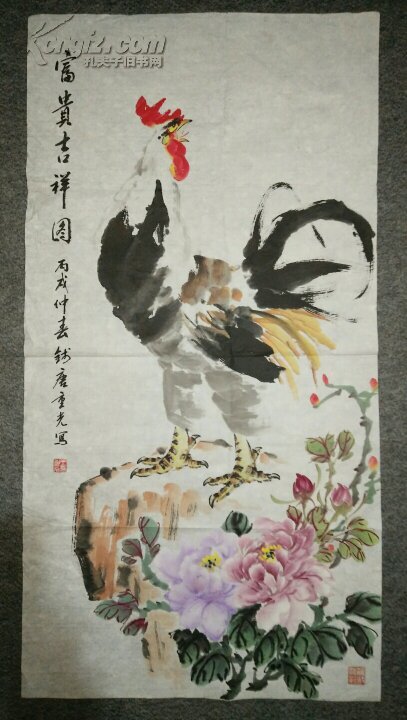 Kongfz.com
孔夫子旧书网
富貴吉祥图
丙戌仲春钱唐重光寫